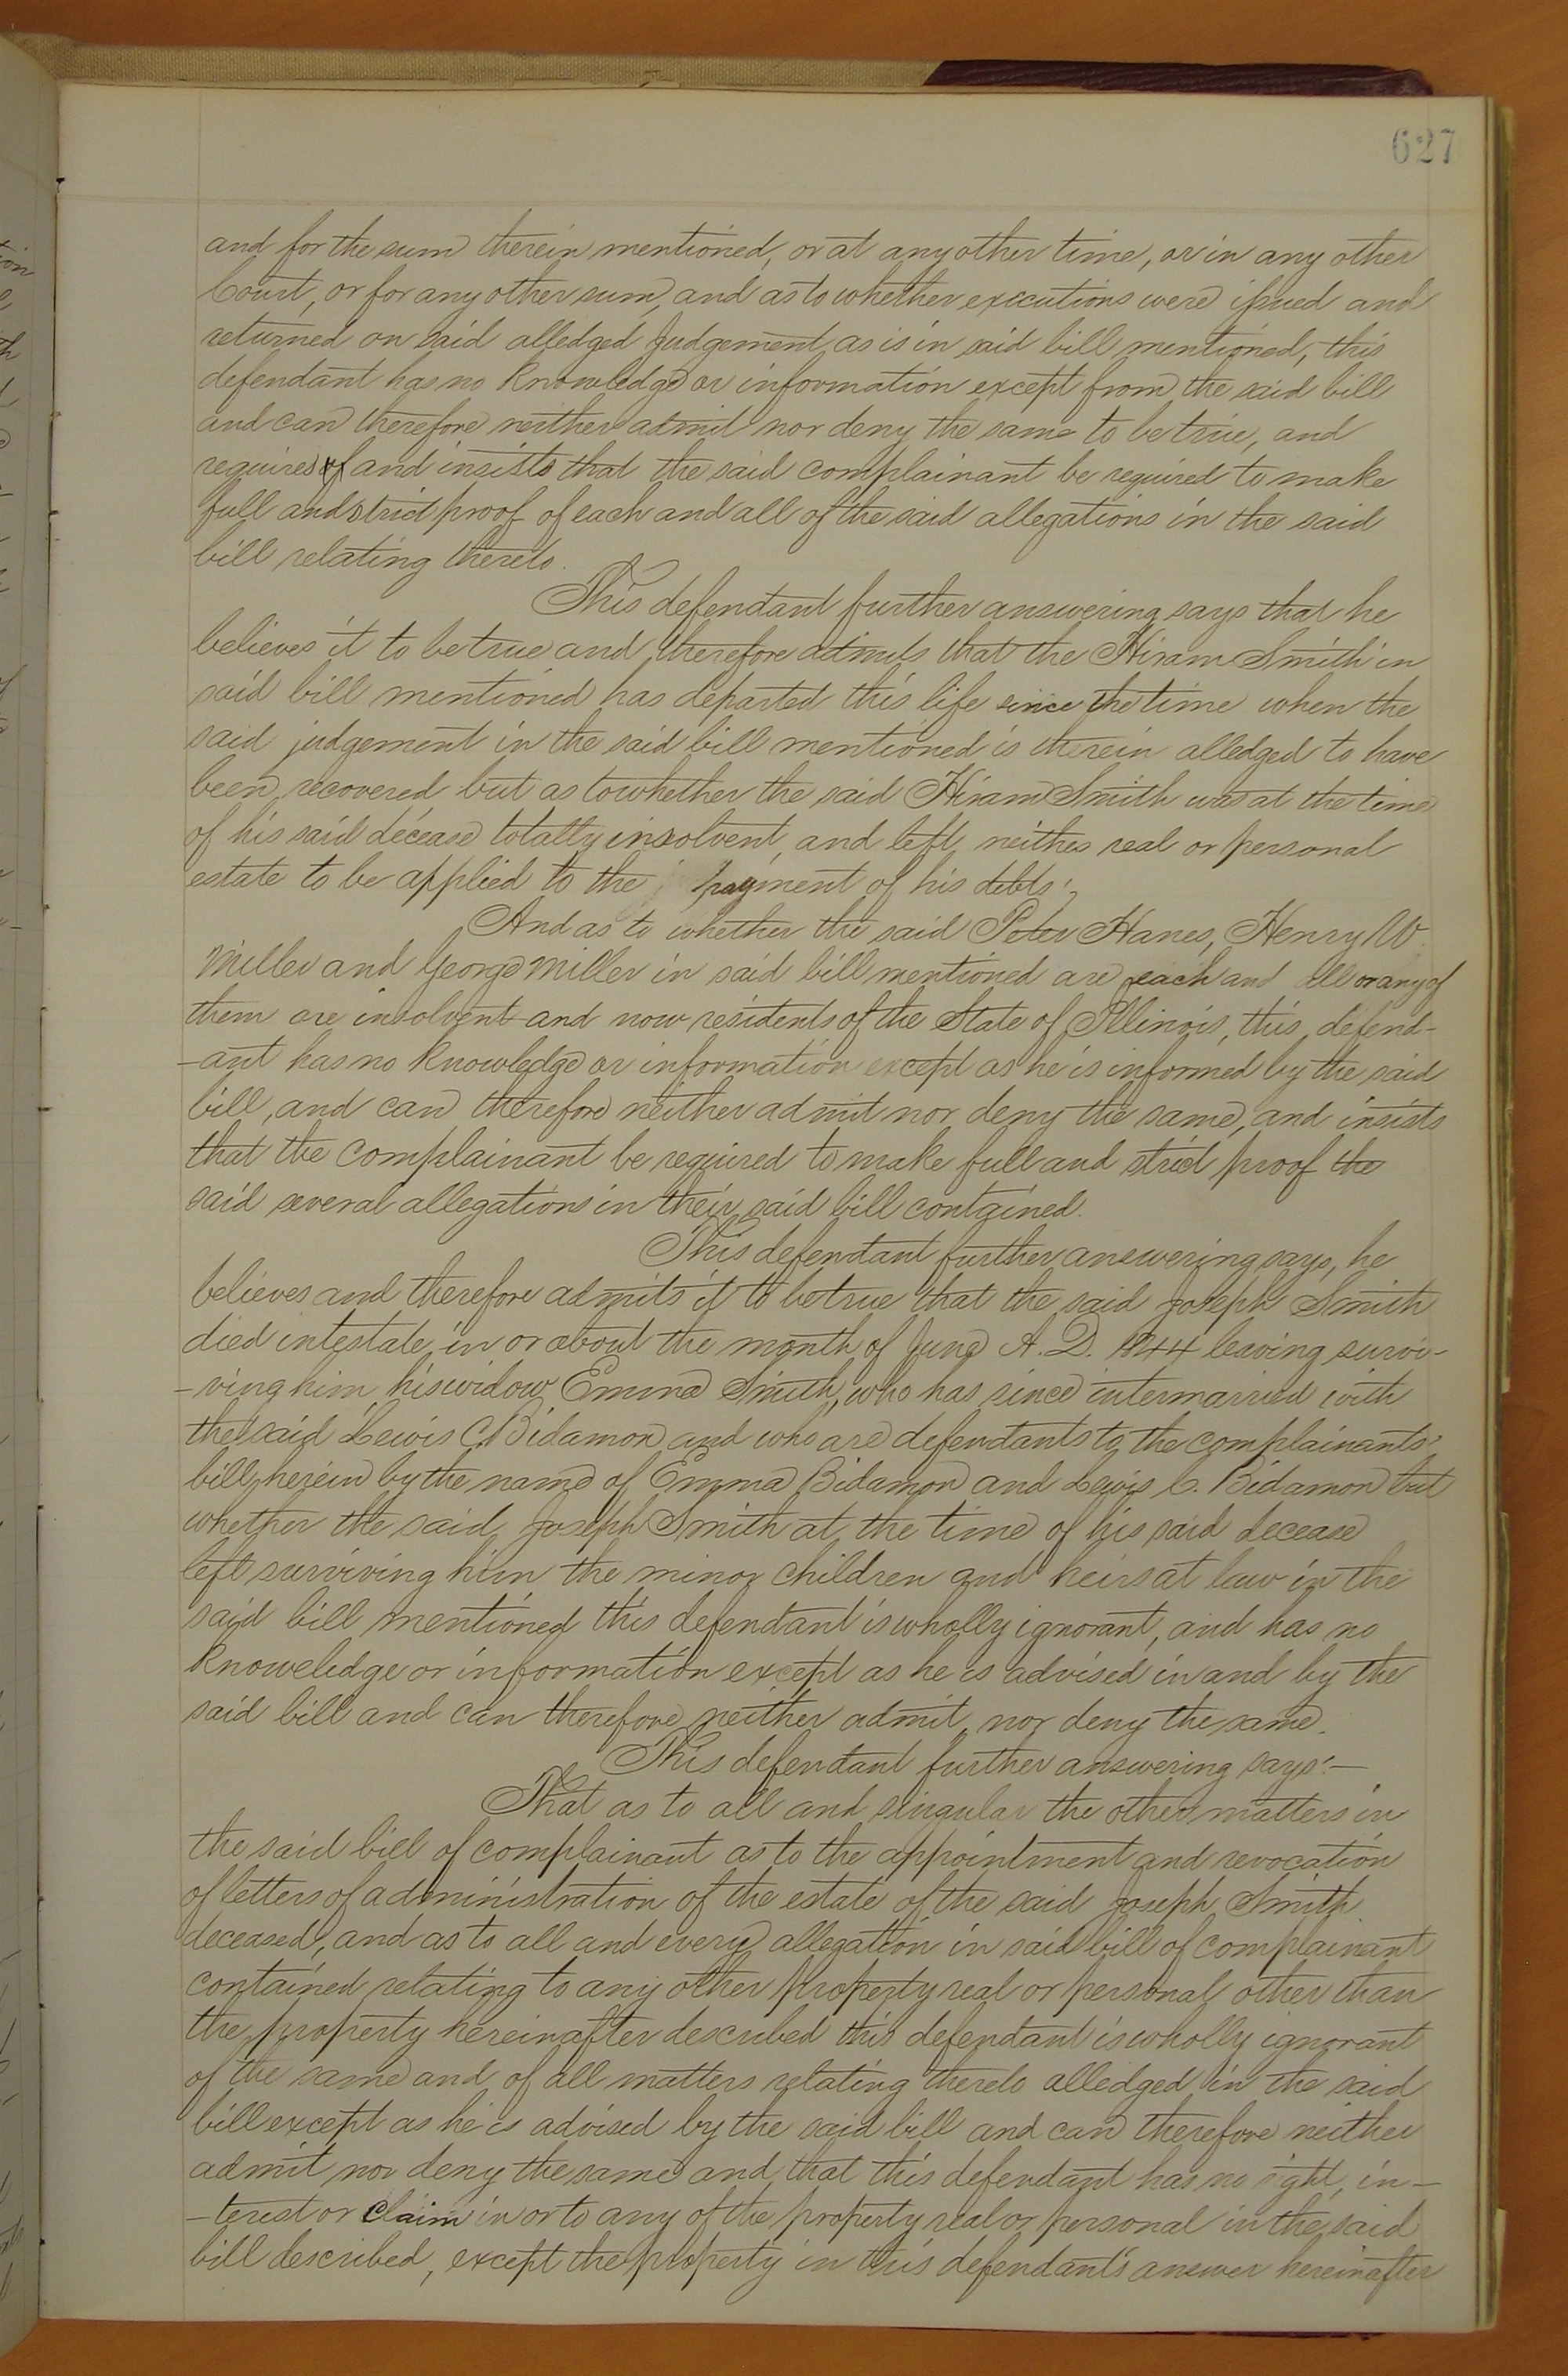 627
and for the sum therein mentioned, or at any other time, or in any other
Court, or for any other sum, and as to whether executions were issued and
returned on said alledged Judgement as is in said bill mentioned, this
defendant has no knowledge or information except from the said bill
and can therefore neither admit nor deny the same to be true, and
requires of and insists that the said complainant be required to make
full and strict proof of each and all of the said allegations in the said
bill relating thereto.
This defendant further answering says that he
believes it to be true and therefore admits that the Hiram Smith in
said bill mentioned has departed this life since the time when the
said judgement in the said bill mentioned is therein alledged to have
been recovered but as to whether the said Hiram Smith was at the time
of his said decease totally insolvent, and left neither real or personal
estate to be applied to the payment of his debts;
And as to whether the said Peter Hanes, Henry W.
Miller and George Miller in said bill mentioned are each and all or any of
them are insolvent and now residents of the State of Illinois, this defend-
-ant has no knowledge or information except as he is informed by the said
bill, and can therefore neither admit nor deny the same, and insists
that the complainant be required to make full and strict proof the
said several allegations in their said bill contained.
This defendant further answering says, he
believes and therefore admits it to be true that the said Joseph Smith
died intestate, in or about the month of June A. D. 1844 leaving survi-
-ving him, his widow Emma Smith, who has since intermarried with
the said Lewis C. Bidamon and who are defendants to the complainants'
bill herein by the name of Emma Bidamon and Lewis C. Bidamon but
whether the said Joseph Smith at the time of his said decease
left surviving him the minor children and heirs at law in the
said bill mentioned this defendant is wholly ignorant, and has no
knoweledge or information except as he is advised in and by the
said bill and can therefore neither admit nor deny the same.
This defendant further answering says:—
That as to all and singular the other matters in
the said bill of complainant as to the appointment and revocation
of letters of administration of the estate of the said Joseph Smith
deceased, and as to all and every allegation in said bill of complainant
contained relating to any other property real or personal other than
the property hereinafter described this defendant is wholly ignorant
of the same and of all matters relating thereto alledged in the said
bill except as he is advised by the said bill and can therefore neither
admit nor deny the same and that this defendant has no right, in-
-terest or claim in or to any of the property real or personal in the said
bill described, except the property in this defendant's answer hereinafter